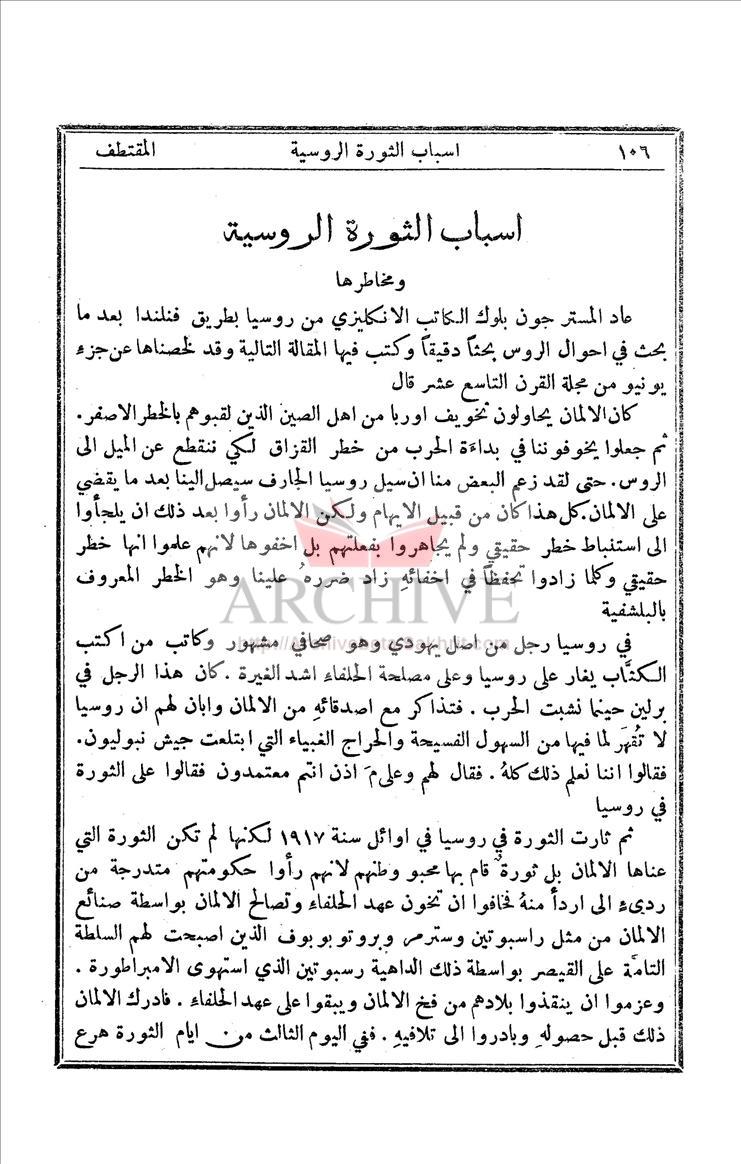 ١٠٦ اسباب الثورة الروسية المقتطف
اسباب الثورة الروسية
ومخاطرها
عاد المستر جون بلوك الكاتب الانكليزي من روسيا بطريق فنلندا بعد ما
بحث في احوال الروس بحثاً دقيقاً وكتب فيها المقالة التالية وقد لخصناها عن جزء
يونيو من مجلة القرن التاسع عشر قال
كان الالمان يحاولون تخويف اوربا من اهل الصين الذين لقبوهم بالخطر الاصفر.
ثم جعلوا يخوفوننا في بداءَة الحرب من خطر القزاق لكي ننقطع عن الميل الى
الروس. حتى لقد زعم البعض منا ان سيل روسيا الجارف سيصل الينا بعد ما يقضي
على الالمان. كل هذا كان من قبيل الايهام ولكن الالمان رأوا بعد ذلك ان يلجأوا
الى استنباط خطر حقيقي ولم يجاهروا بفعلتهم بل اخفوها لانهم علموا انها خطر
حقيقي وكلما زادوا تحفظاً في اخفائهِ زاد ضررهُ علينا وهو الخطر المعروف
بالبلشفية
ARCHIVE
في روسيا رجل من اصل يهودي وهو صحافي مشهور وكاتب من اكتب
الكتَّاب يغار على روسيا وعلى مصلحة الحلفاء اشد الغيرة. كان هذا الرجل في
برلين حينما نشبت الحرب. فتذاكر مع اصدقائهِ من الالمان وابان لهم ان روسيا
لا تُقهَر لما فيها من السهول الفسيحة والحراج الغبياء التي ابتلعت جيش نبوليون.
فقالوا اننا نعلم ذلك كلهُ. فقال لهم وعلى مَ اذن انتم معتمدون فقالوا على الثورة
في روسيا
ثم ثارت الثورة في روسيا في اوائل سنة ١٩١٧ لكنها لم تكن الثورة التي
عناها الالمان بل ثورةٌ قام بها محبو وطنهم لانهم رأوا حكومتهم متدرجة من
رديء الى اردأ منهُ فخافوا ان تخون عهد الحلفاء وتصالح الالمان بواسطة صنائع
الالمان من مثل راسبوتين وسترمر وبروتوبوبوف الذين اصبحت لهم السلطة
التامَّة على القيصر بواسطة ذلك الداهية رسبوتين الذي استهوى الامبراطورة.
وعزموا ان ينقذوا بلادهم من فخ الالمان ويبقوا على عهد الحلفاء. فادرك الالمان
ذلك قبل حصولهِ وبادروا الى تلافيهِ. ففي اليوم الثالث من ايام الثورة هرع